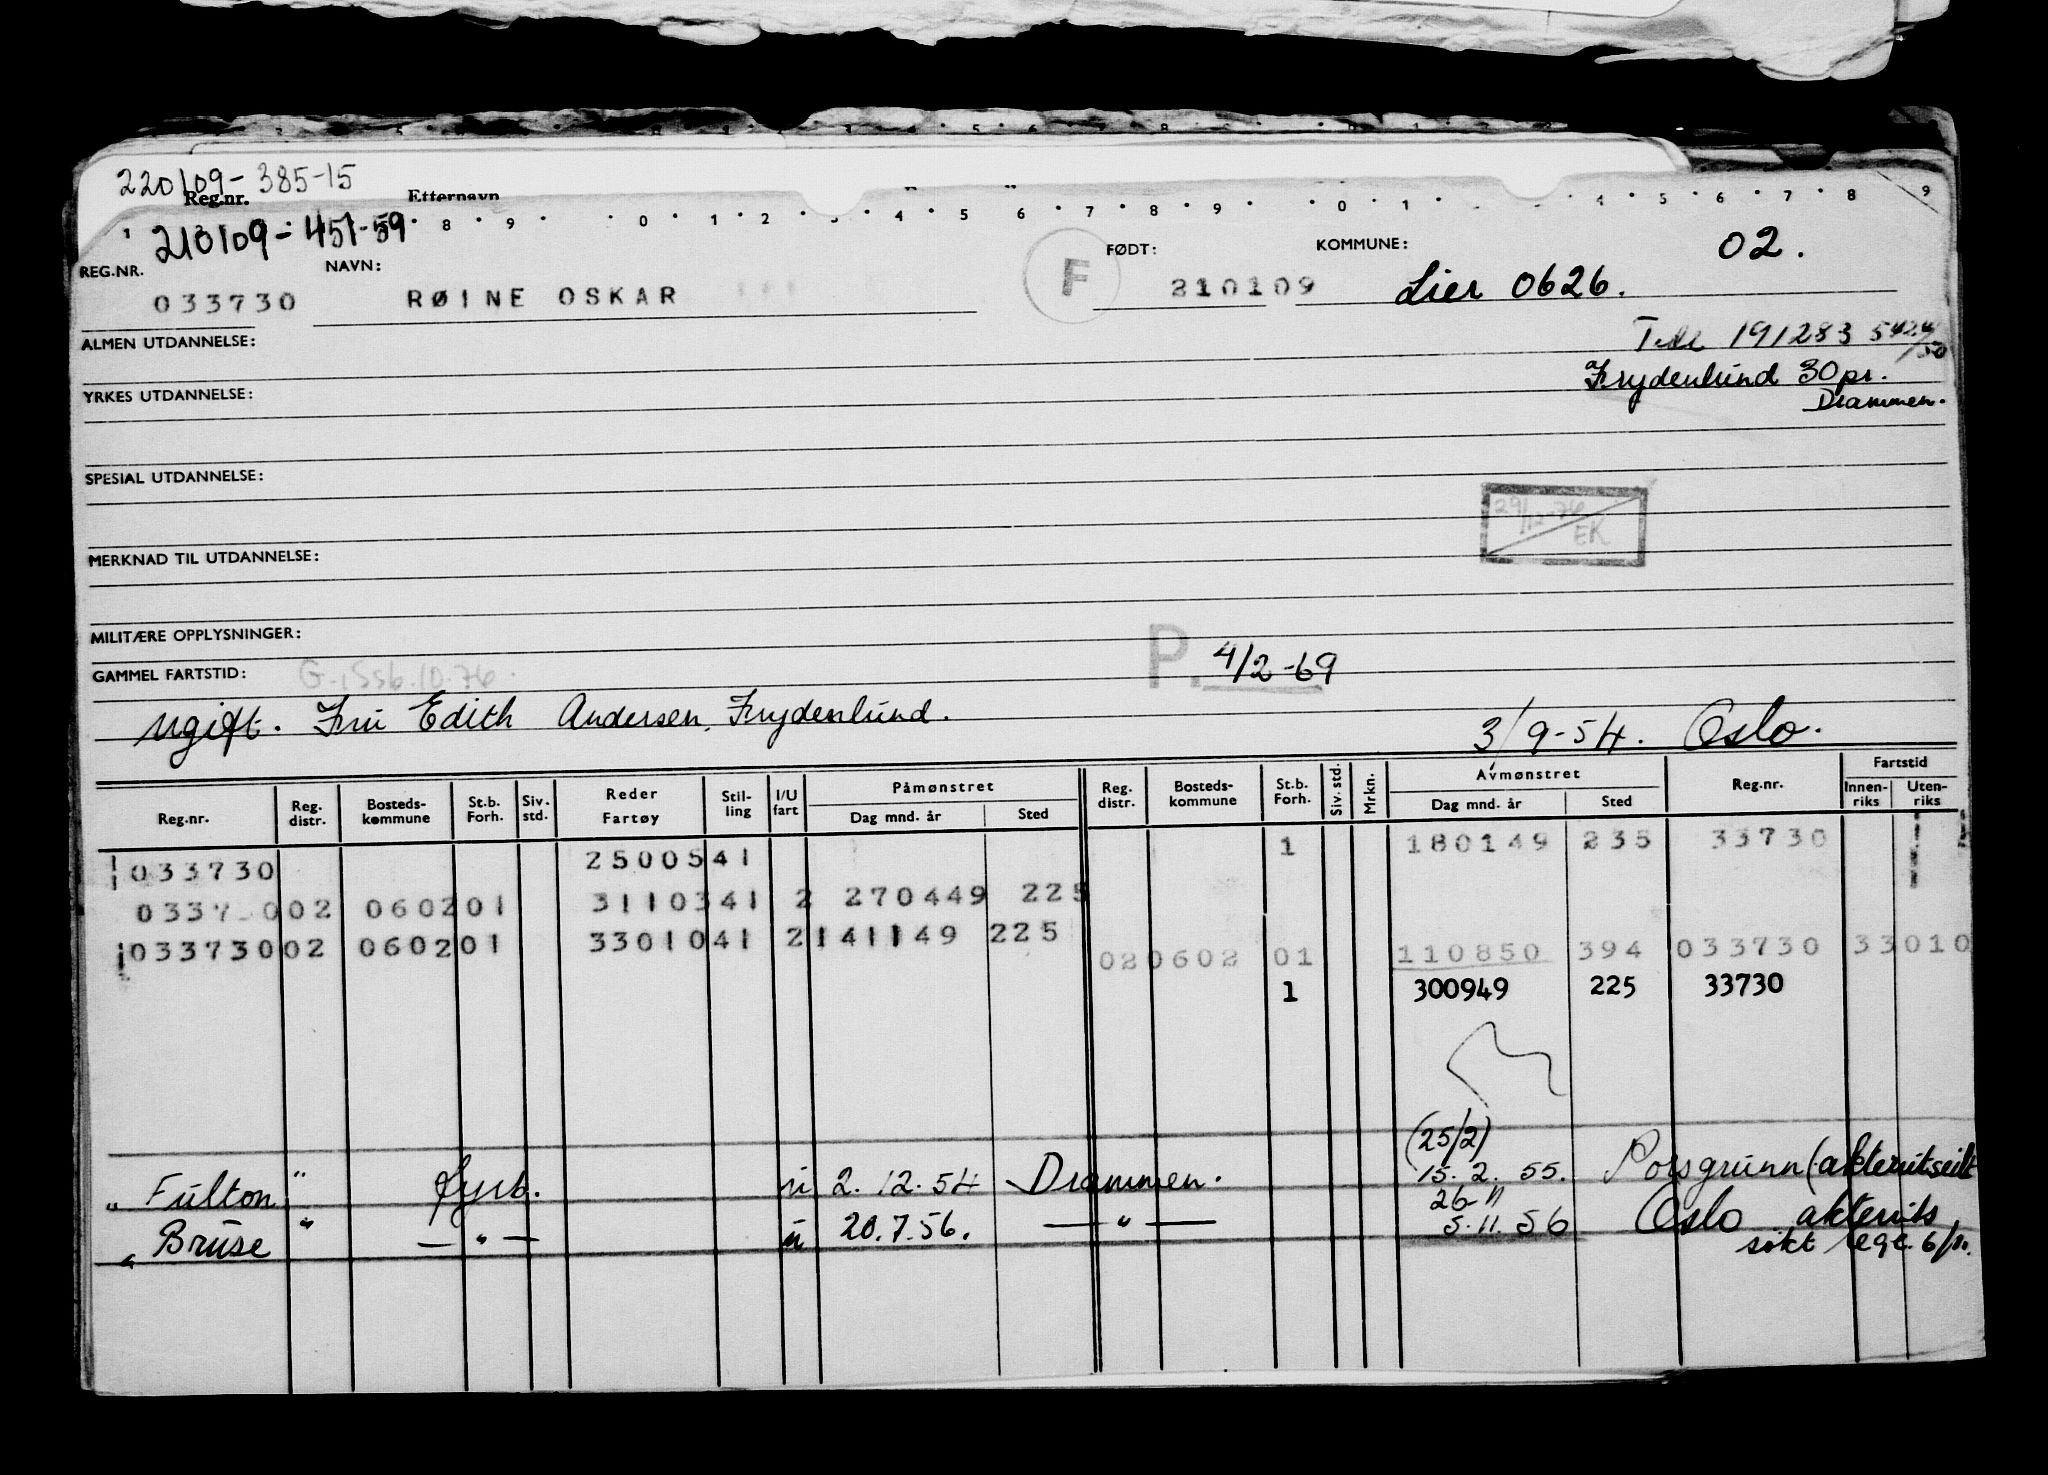 220109-385-15
Reg.nr. Etternavn
210109-451-59
1 8 9 0 1 2 3 4 5 6 7 8 9 0 1 4 5 6 7 8 9
REG.NR. NAVN: F FØDT: KOMMUNE: 02.
033730 RØINE OSKAR 210109 Lier 0626.
ALMEN UTDANNELSE: 191283
Frydenlund 30 pr.
YRKES UTDANNELSE: Drammen.
SPESIAL UTDANNELSE:
29/12-76
EK
MERKNAD TIL UTDANNELSE:
MILITÆRE OPPLYSNINGER:
GAMMEL FARTSTID: P. 4/2-69
ugift. Fru Edith Andersen, Frydenlund. 3/9-54. Oslo.
Reg.nr. Reg. distr. Bosteds- kommune St.b. Forh. Siv. std. Reder Fartøy Stil- ling I/U fart Påmønstret Dag mnd. år Sted Reg. distr. Bosteds- kommune St.b. Forh. Siv. std. Mrkn. Avmønstret Dag mnd. år Sted Reg.nr. Fartstid Innen- riks Uten- riks
033730 2500541 1 180149 235 33730
0337 0 02 0602 01 3110341 2 270449 225
033730 02 0602 01 3301041 2 141149 225
02 0602 01 110850 394 033730 33010
1 300949 225 33730
(25/2)
" Fulton " fyrb. u 2.12.54 Drammen. 15.2.55. Porsgrunn (akterutseilt
26-11
" Bruse " — " — u 20.7.56. — " — 5.11.56 Oslo
søkt lege 6/11.